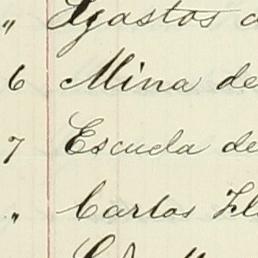 " Gastos
6 Mina de
7 Escuela de
" Carlos